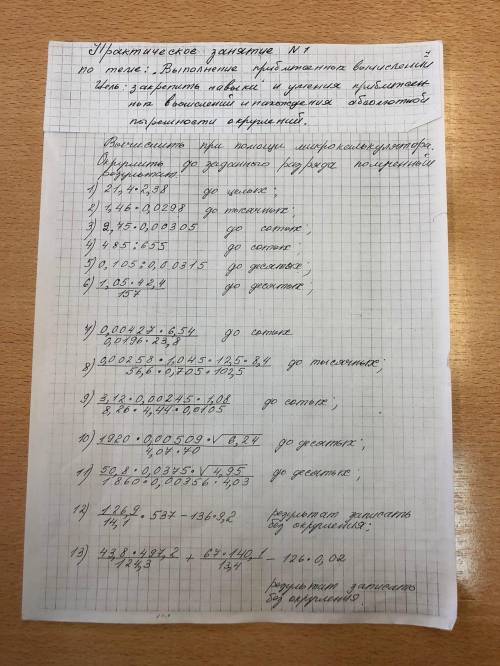 Практическое занятие N 1
по теме: „Выполнение приближенных вычислений
Цель: закрепить навыки и умения приближен-
ных вычислений и нахождения абсолютной
погрешности округлений.
Вычислить при помощи микрокалькулятора.
Округлить до заданного разряда полученный
результат:
1) 21,4 • 2,38 до целых;
2) 1,46 • 0,0298 до тысячных;
3) 2,75 • 0,00305 до сотых;
4) 485 : 655 до сотых;
5) 0,105 : 0,00315 до десятых;
6) 1,05 • 42,4 до десятых;
157
7) 0,00427 • 6,54 до сотых
0,0196 • 23,8
8) 0,00258 • 1,045 • 12,5 • 8,4 до тысячных;
56,6 • 0,705 • 102,5
9) 3,12 • 0,00245 • 1,08 до сотых;
8,26 • 4,44 • 0,0105
10) 1920 • 0,00509 • √6,24 до десятых;
4,07 • 70
11) 50,8 • 0,0375 • √4,95 до десятых;
1860 • 0,00356 • 4,03
12) 126,9 • 537 - 136 • 9,2 результат записать
14,1 без округления;
13) 43,8 • 497,2 + 67 • 140,1 - 126 • 0,02
124,3 13,4
результат записать
без округления.